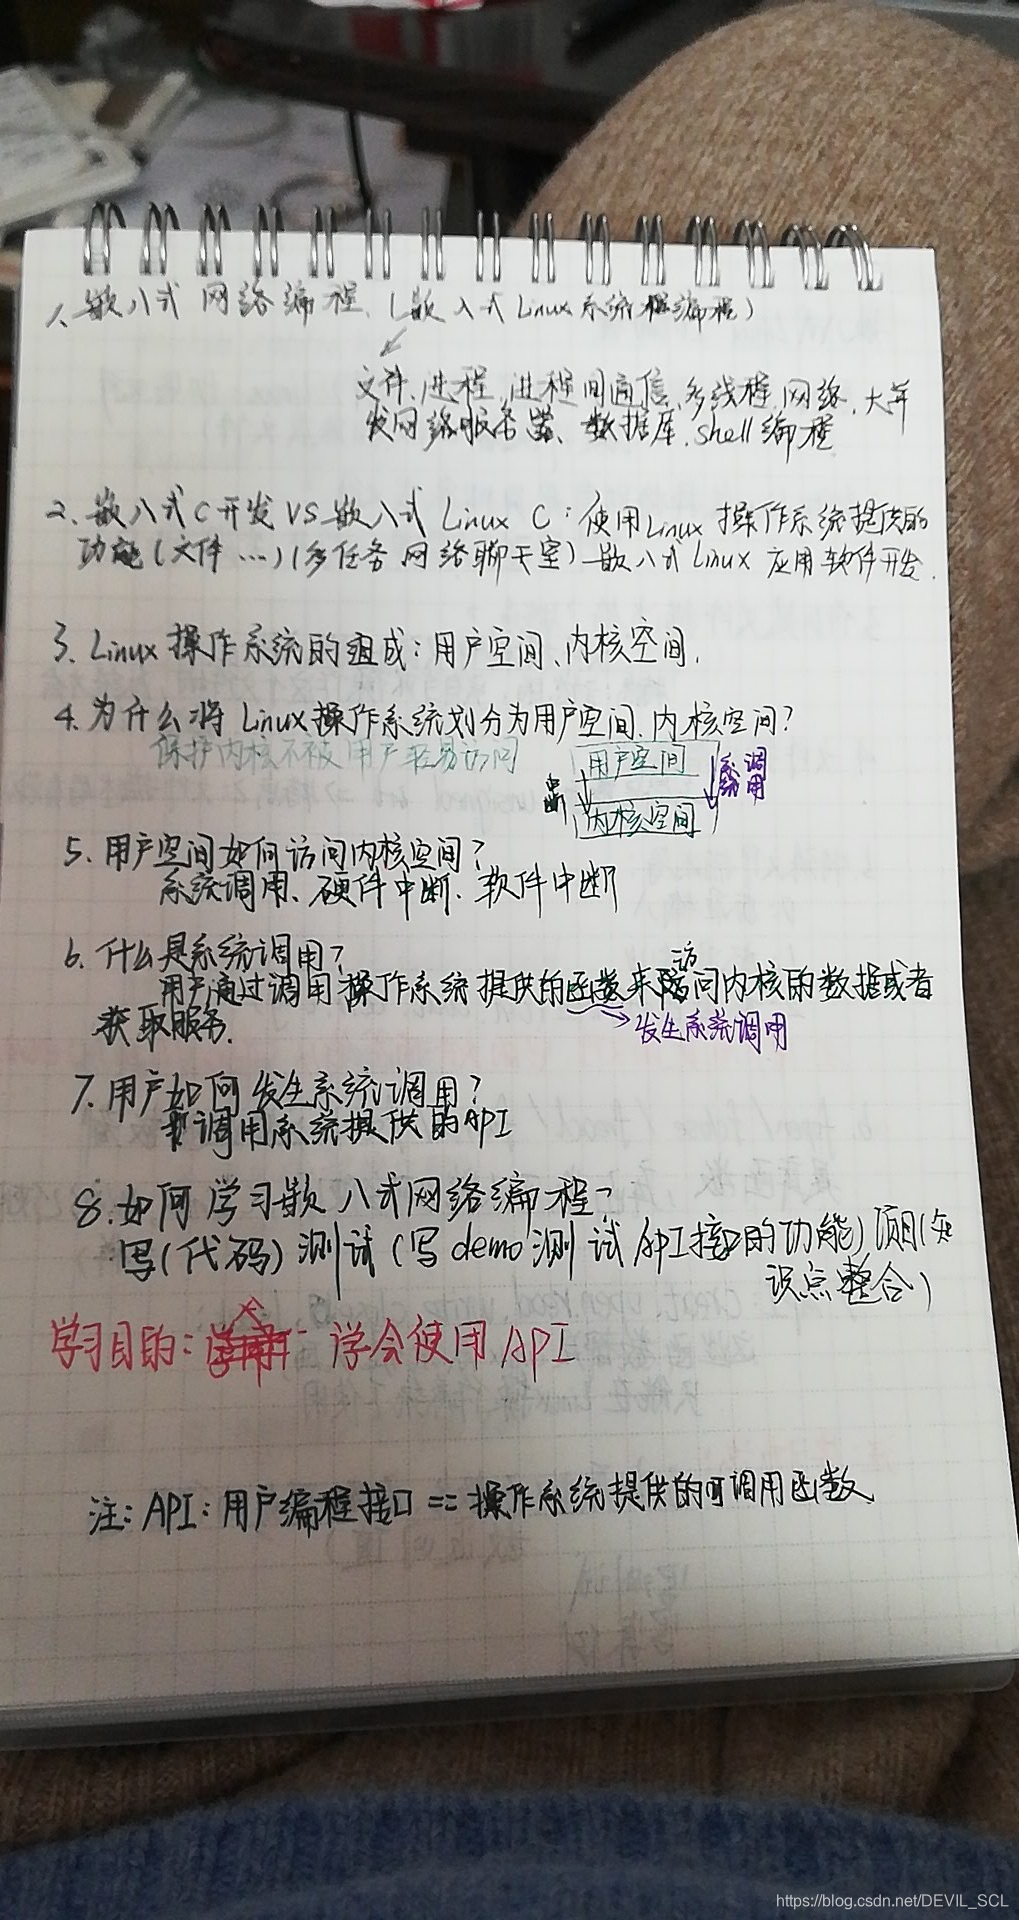 1、嵌入式网络编程、(嵌入式Linux系统编程)
文件、进程、进程间通信、多线程、网络、大并
发网络服务器、数据库、shell编程
2、嵌入式C开发 VS 嵌入式 Linux C:使用Linux操作系统提供的
功能(文件…)(多任务网络聊天室)—嵌入式Linux应用软件开发.
3、Linux操作系统的组成:用户空间、内核空间.
4.为什么将Linux操作系统划分为用户空间、内核空间?
保护内核不被用户轻易访问
用户空间
系统调用
中断
内核空间
5、用户空间如何访问内核空间?
系统调用、硬件中断、软件中断
6、什么是系统调用?
用户通过调用操作系统提供的函数来访问内核的数据或者
获取服务.
发生系统调用
7、用户如何发生系统调用?
调用系统提供的API
8.如何学习嵌入式网络编程?
写(代码)测试(写demo测试API接口的功能)项目(知
识点整合)
学习目的: 学会使用API
注:API:用户编程接口 == 操作系统提供的可调用函数
https://blog.csdn.net/DEVIL_SCL